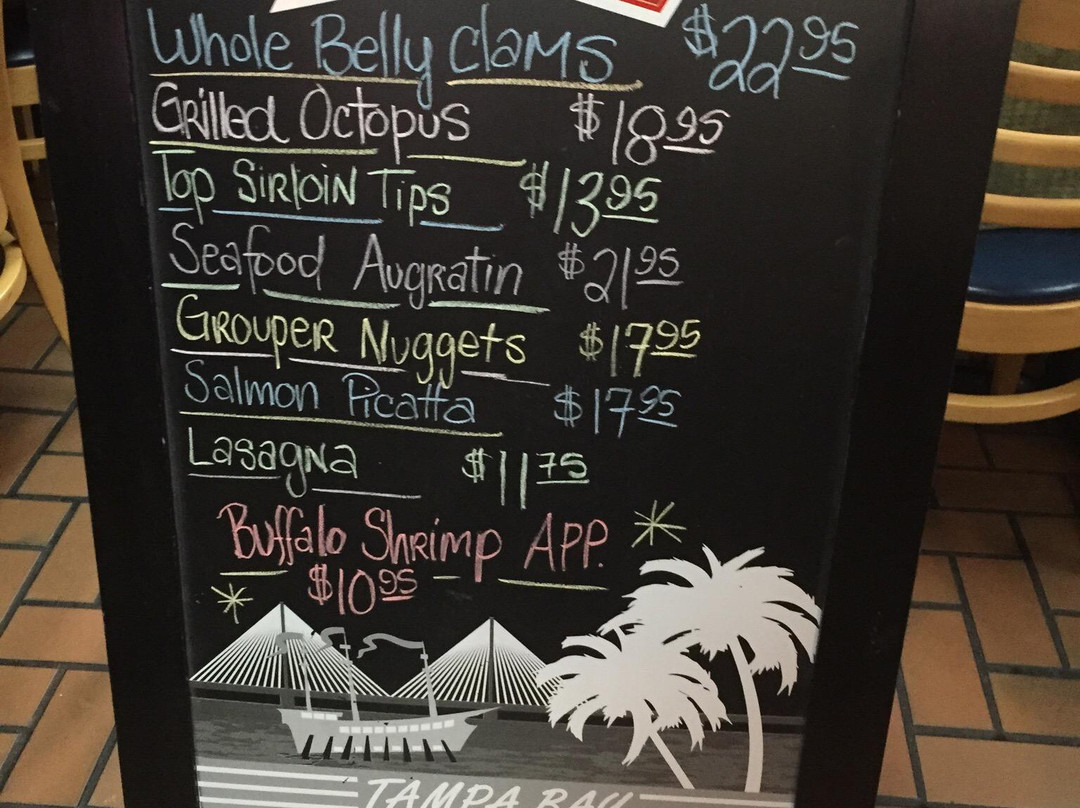 Whole Belly Clams $22.95
Grilled Octopus $18.95
Top Sirloin Tips $13.95
Seafood Augratin $21.95
Grouper Nuggets $17.95
Salmon Picatta $17.95
Lasagna $11.75
Buffalo Shrimp App.
$10.95
TAMPA BAY